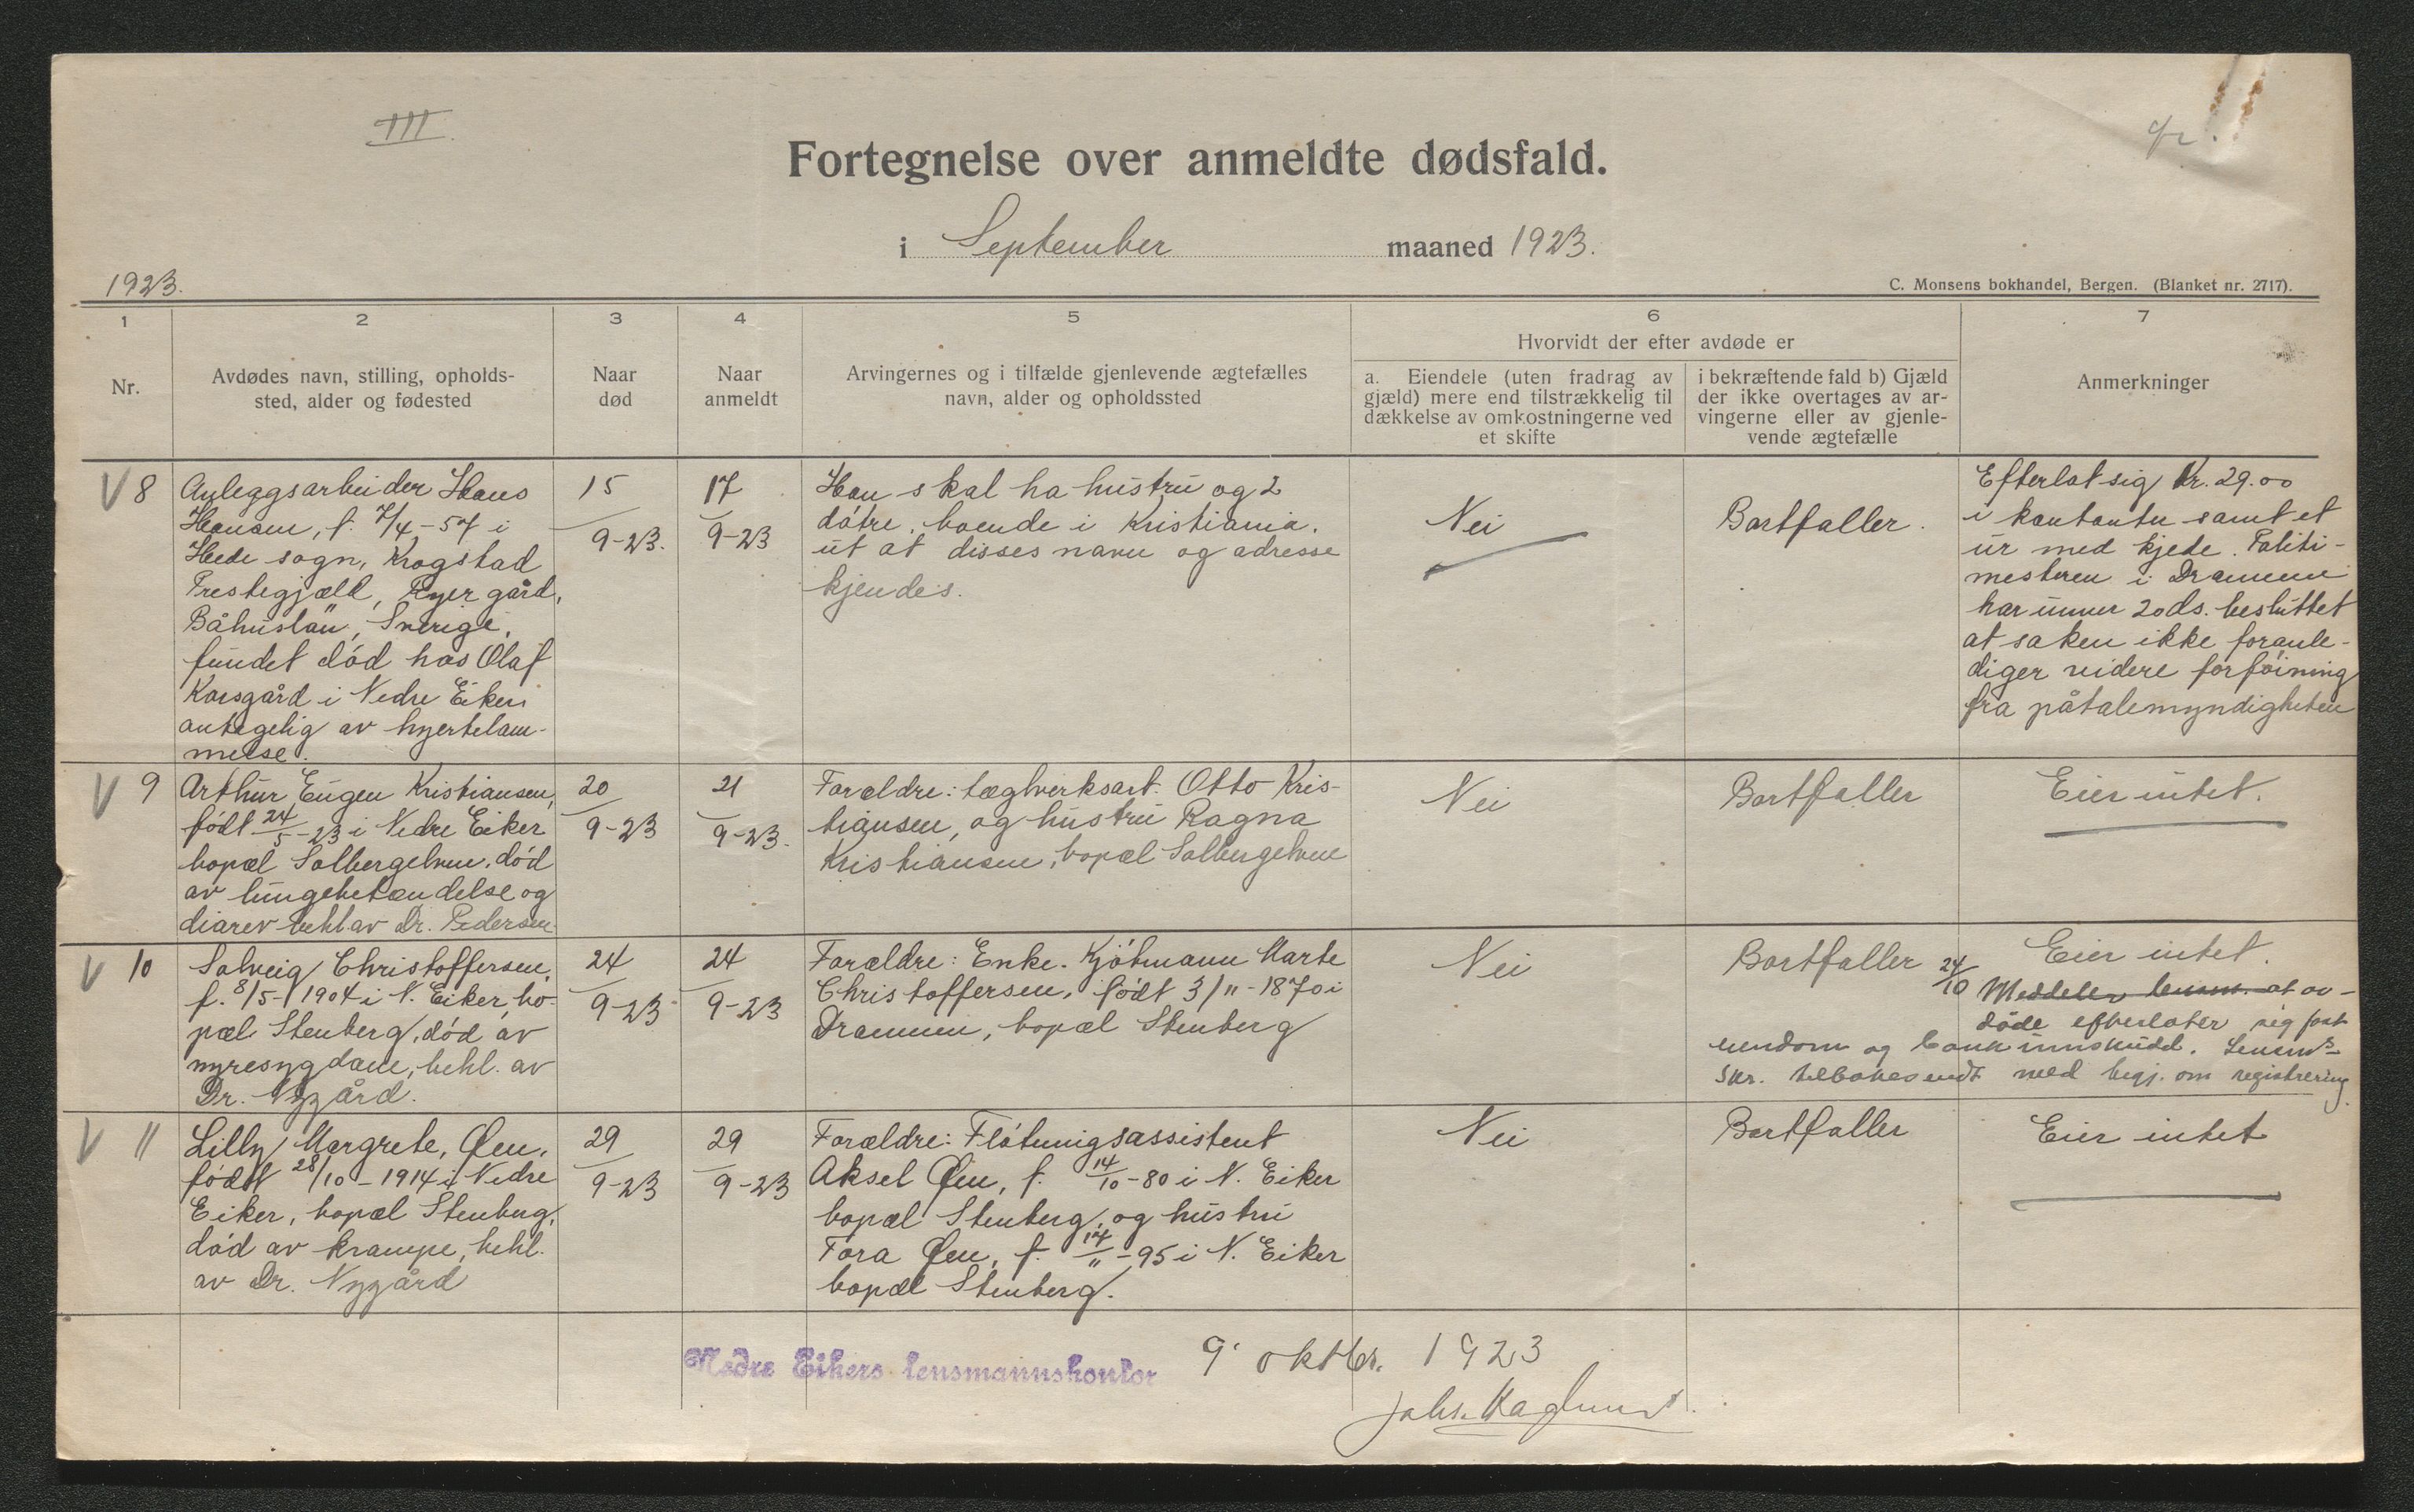 III.
Fortegnelse over anmeldte dødsfald.
i September maaned 1923.
1923.
C. Monsens bokhandel, Bergen. (Blanket nr. 2717).
1 2 3 4 5 6 7
Nr.
Avdødes navn, stilling, opholds-
sted, alder og fødested
Naar
død
Naar
anmeldt
Arvingernes og i tilfælde gjenlevende ægtefælles
navn, alder og opholdssted
Hvorvidt der efter avdøde er
a. Eiendele (uten fradrag av
gjæld) mere end tilstrækkelig til
dækkelse av omkostningerne ved
et skifte
i bekræftende fald b) Gjæld
der ikke overtages av ar-
vingerne eller av gjenle-
vende ægtefælle
Anmerkninger
V 8
Anleggsarbeider Hans
Hansen, f. 7/4-57 i
Hede sogn, Krogstad
Prestegjæld, Ryer gård,
Båhuslän, Sverige,
fundet død hos Olaf
Korsgård i Nedre Eiker
antagelig av hjertelam-
melse.
15
9-23.
17
9-23
Han skal ha hustru og 2
døtre, boende i Kristiania.
ut at disses navn og adresse
kjendes.
Nei
Bortfaller.
Efterlot sig Kr. 29.00
i kontanter samt et
ur med kjede. Politi-
mesteren i Drammen
har unner 20 ds. besluttet
at saken ikke foranle-
diger videre forføining
fra påtalemyndigheten
V 9
Arthur Eugen Kristiansen,
født 24/5-23 i Nedre Eiker
bopæl Solbergelven, død
av lungebetændelse og
diarev behl. av Dr. Pedersen
20
9-23
21
9-23.
Forældre: teglverksarb. Otto Kris-
tiansen, og hustru Ragna
Kristiansen, bopæl Solbergelven
Nei
Bortfaller
Eier intet.
V 10
Solveig Christoffersen,
f. 8/5-1904 i N. Eiker, bo-
pæl Stenberg, død av
nyresygdom, behl. av
Dr. Nygård.
24
9-23
24
9-23
Forældre: Enke. Kjøbmann Marte
Christoffersen, født 3/11-1870 i
Drammen, bopæl Stenberg
Nei
Bortfaller
Eier intet.
24/10 Meddeler lensm. at av-
døde efterlater sig fast
eiendom og bankinnskudd. Lensm's
skr. tilbakesendt med begj. om registrering.
V 11
Lilly Margrete, Øen,
født 28/10-1914 i Nedre
Eiker, bopæl Stenberg,
død av krampe, behl.
av Dr. Nygård
29
9-23
29
9-23
Forældre: Fløtningsassistent
Aksel Øen, f. 14/10-80 i N. Eiker
bopæl Stenberg, og hustru
Tora Øen, f. 14/11-95 i N. Eiker
bopæl Stenberg.
Nei
Bortfaller
Eier intet
Nedre Eikers lensmannskontor 9. oktbr. 1923